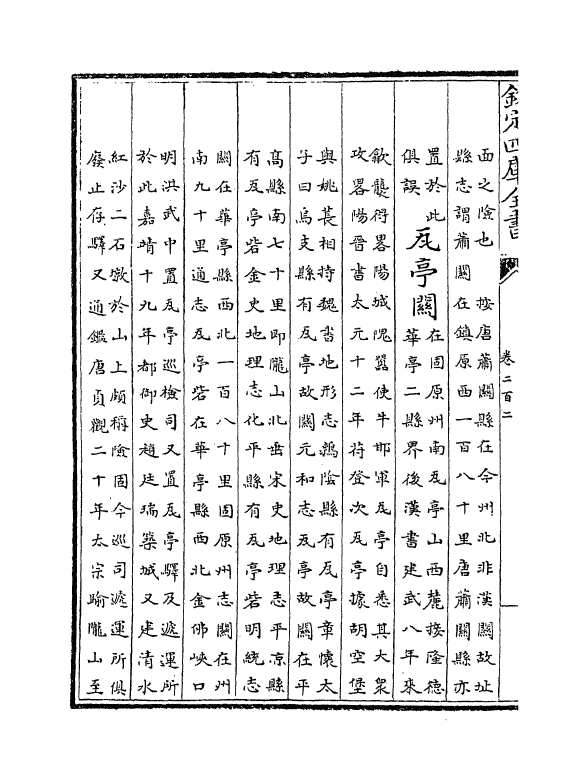 欽定四庫全書
卷二百二
面之險也　按唐蕭關縣在今州北非漢關故址
縣志謂蕭關在鎮原西一百八十里唐蕭關縣亦
置於此
俱誤
瓦亭關
在固原州南瓦亭山西麓接隆德
華亭二縣界後漢書建武八年來
歙襲得畧陽城隗囂使牛邯軍瓦亭自悉其大衆
攻畧陽晉書太元十二年苻登次瓦亭據胡空堡
與姚萇相持魏書地形志鶉陰縣有瓦亭章懷太
子曰烏支縣有瓦亭故關元和志瓦亭故關在平
高縣南七十里即隴山北垂宋史地理志平凉縣
有瓦亭砦金史地理志化平縣有瓦亭砦明統志
關在華亭縣西北一百八十里固原州志關在州
南九十里通志瓦亭砦在華亭縣西北金佛峽口
明洪武中置瓦亭巡檢司又置瓦亭驛及遞運所
於此嘉靖十九年都御史趙廷瑞築城又建清水
紅沙二石墩於山上頗稱險固今巡司遞運所俱
廢止存驛又通鑑唐貞觀二十年太宗踰隴山至